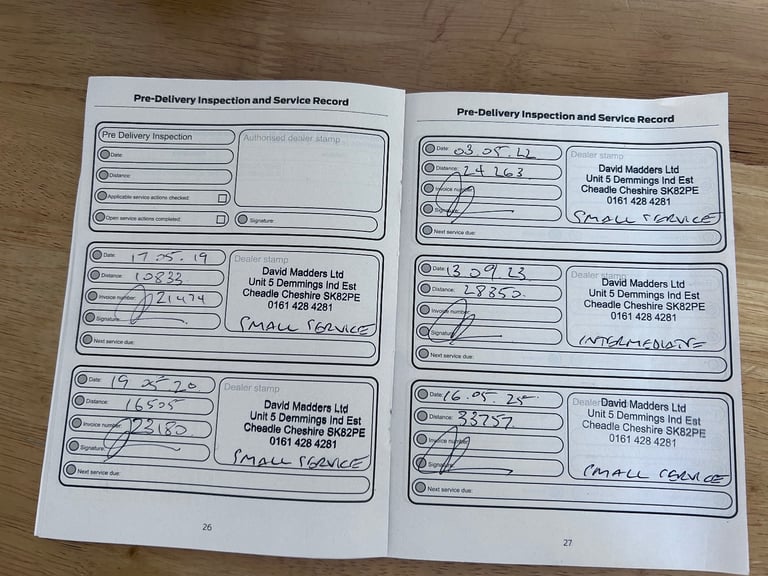 Pre-Delivery Inspection and Service Record
Pre Delivery Inspection
Date:
Distance:
Applicable service actions checked:
Open service actions completed:
Authorised dealer stamp
Signature:
Date: 17.05.19
Distance: 10833
Invoice number: 21474
Signature:
Next service due:
Dealer stamp
David Madders Ltd
Unit 5 Demmings Ind Est
Cheadle Cheshire SK82PE
0161 428 4281
SMALL SERVICE
Date: 19 05 20
Distance: 16505
Invoice number: 23180
Signature:
Next service due:
Dealer stamp
David Madders Ltd
Unit 5 Demmings Ind Est
Cheadle Cheshire SK82PE
0161 428 4281
SMALL SERVICE
26
Pre-Delivery Inspection and Service Record
Date: 03.05.22
Distance: 24263
Invoice number:
Signature:
Next service due:
Dealer stamp
David Madders Ltd
Unit 5 Demmings Ind Est
Cheadle Cheshire SK82PE
0161 428 4281
SMALL SERVICE
Date: 13.09.23
Distance: 28350
Invoice number:
Signature:
Next service due:
Dealer stamp
David Madders Ltd
Unit 5 Demmings Ind Est
Cheadle Cheshire SK82PE
0161 428 4281
INTERMEDIATE
Date: 16.05.25
Distance: 33757
Invoice number:
Signature:
Next service due:
Dealer
David Madders Ltd
Unit 5 Demmings Ind Est
Cheadle Cheshire SK82PE
0161 428 4281
SMALL SERVICE
27